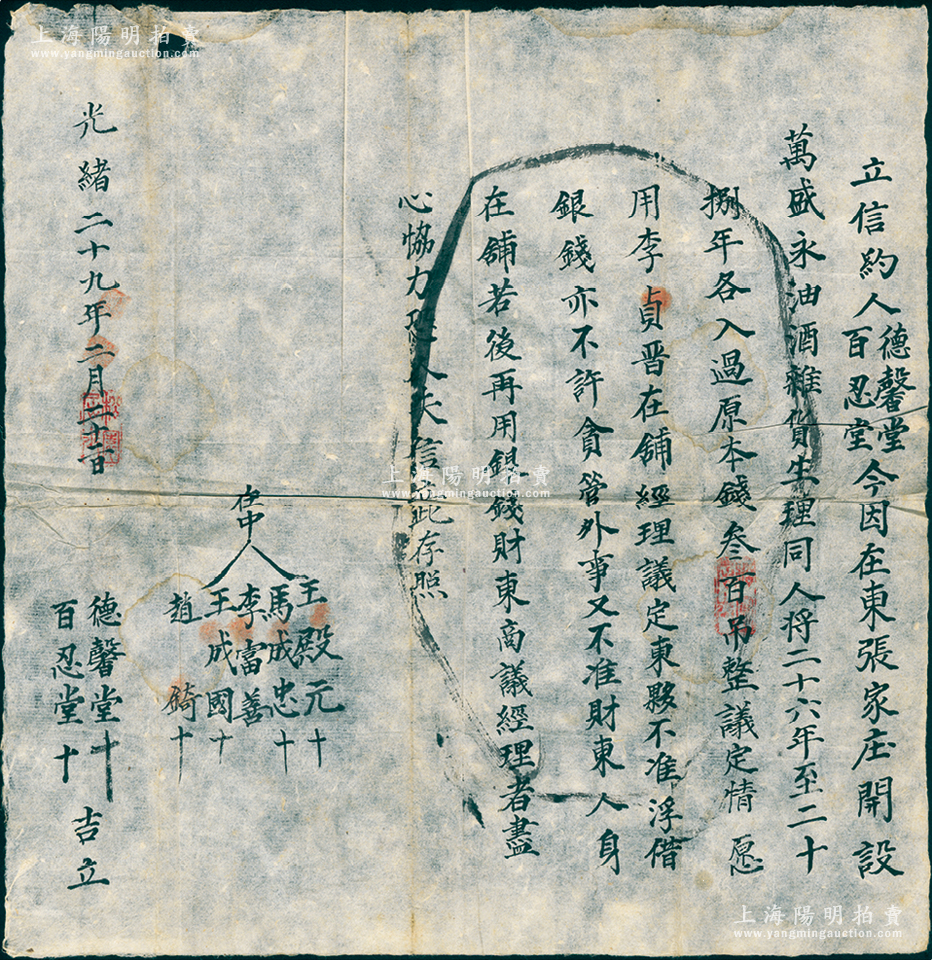 立信約人德馨堂百忍堂今因在東張家庄開設
萬盛永油酒雜貨生理同人将二十六年至二十
捌年各入過原本錢叁百吊整議定情愿
用李貞晋在舖經理議定東夥不准浮借
銀錢亦不許貪管外事又不准財東人身
在舖若後再用銀錢財東商議經理者盡
心恊力恐人失信立此存照
在中人
王殿元十
馬成忠十
李富善
王成國十
趙錡十
光緒二十九年二月二十日
德馨堂十
百忍堂十
吉立
上海陽明拍賣
www.yangmingauction.com
上海陽明拍賣
www.yangmingauction.com
上海陽明拍賣
www.yangmingauction.com